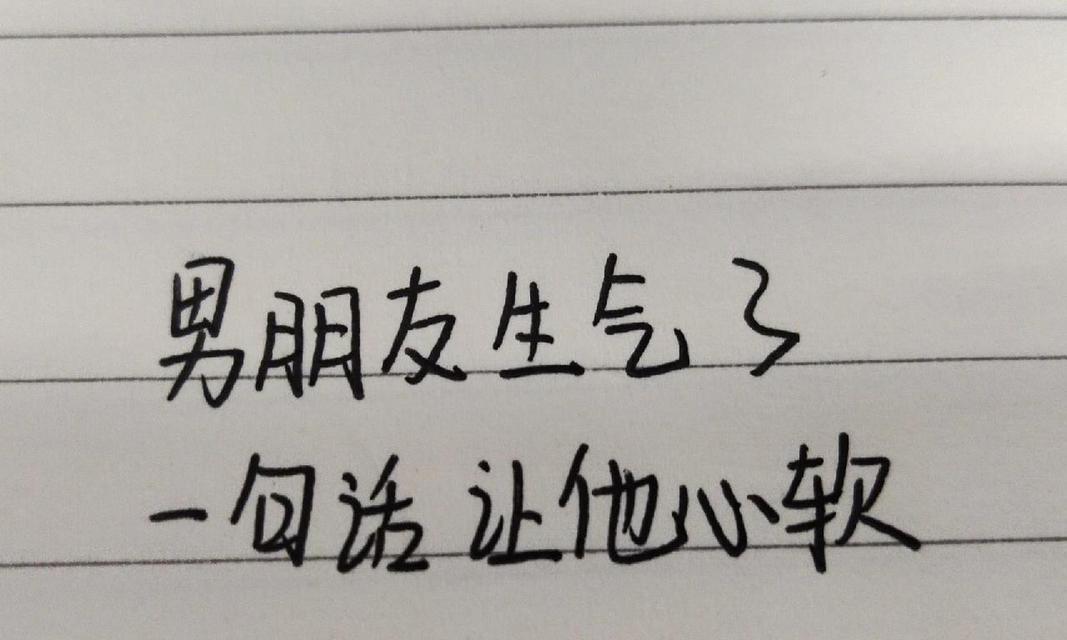 男朋友生气了
一句话让他心软